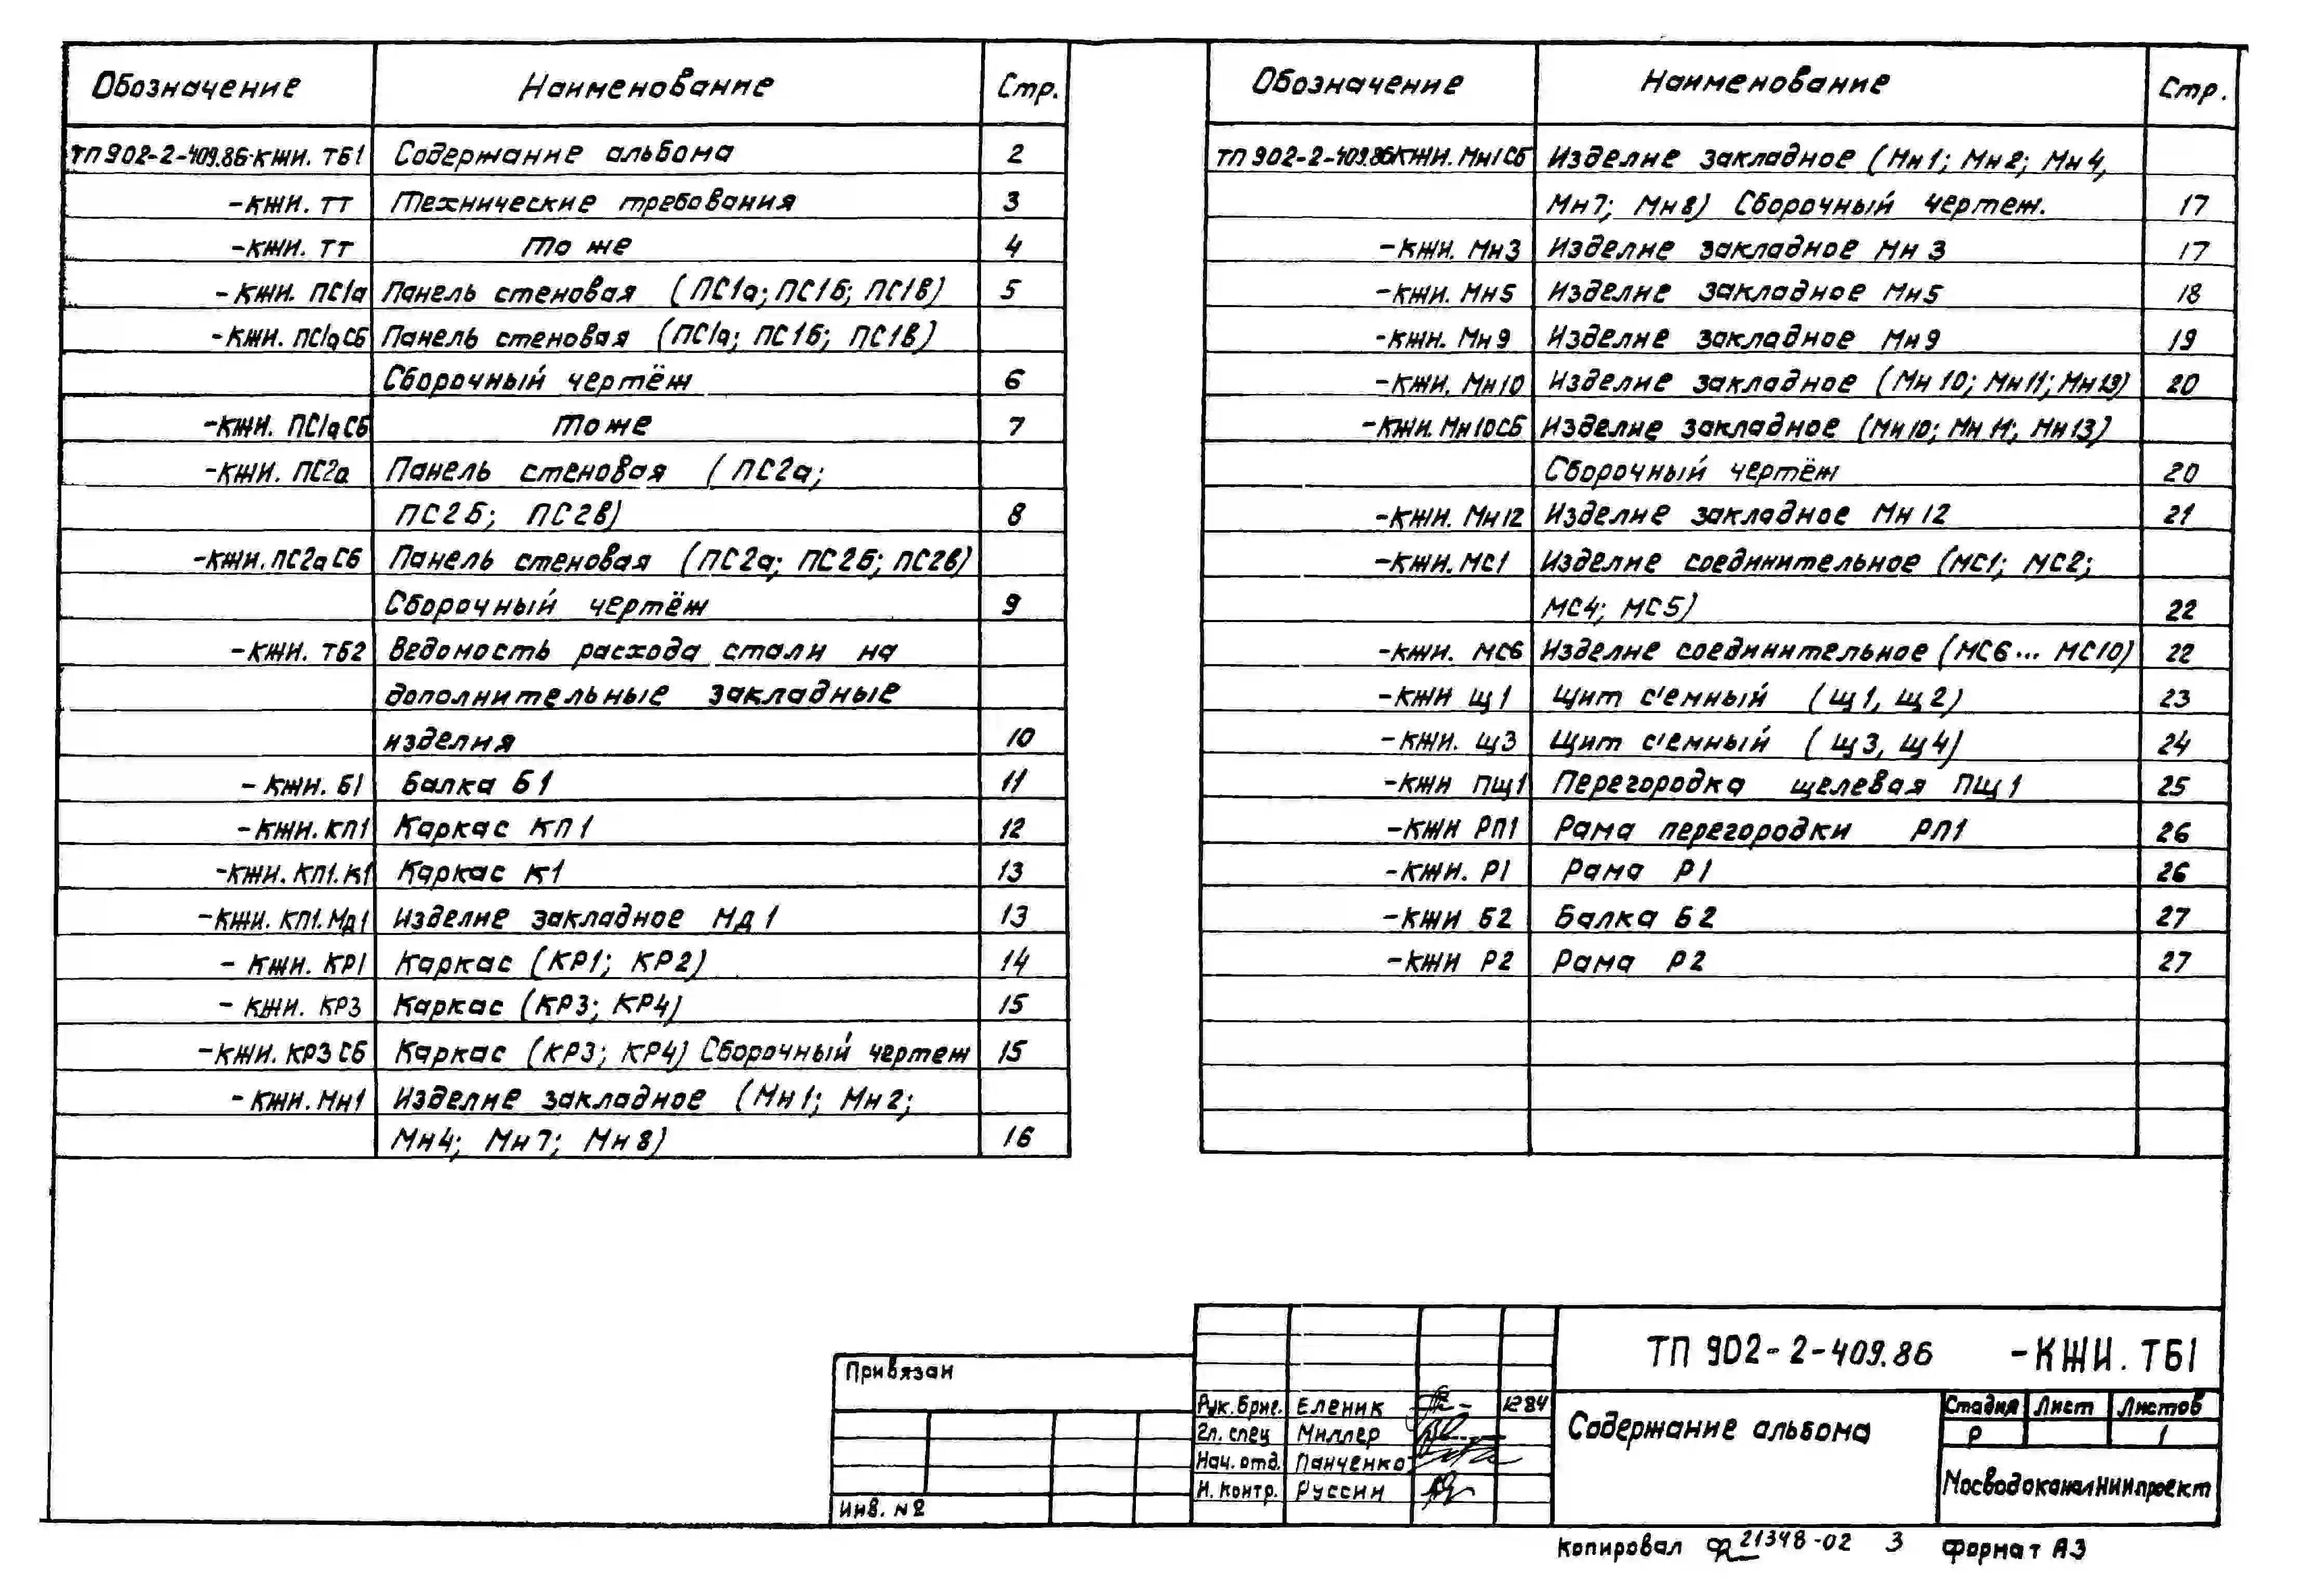 Обозначение Наименование Стр.
ТП902-2-409.86-КЖИ.ТБ1 Содержание альбома 2
-КЖИ.ТТ Технические требования 3
-КЖИ.ТТ То же 4
-КЖИ.ПС1а Панель стеновая (ПС1а; ПС1б; ПС1в) 5
-КЖИ.ПС1аСБ Панель стеновая (ПС1а; ПС1б; ПС1в)
Сборочный чертёж 6
-КЖИ.ПС1аСБ То же 7
-КЖИ.ПС2а Панель стеновая (ПС2а;
ПС2Б; ПС2В) 8
-КЖИ.ПС2аСБ Панель стеновая (ПС2а; ПС2б; ПС2в)
Сборочный чертёж 9
-КЖИ.ТБ2 Ведомость расхода стали на
дополнительные закладные
изделия 10
-КЖИ.Б1 Балка Б1 11
-КЖИ.КП1 Каркас КП1 12
-КЖИ.КП1.К1 Каркас К1 13
-КЖИ.КП1.МД1 Изделие закладное МД1 13
-КЖИ.КР1 Каркас (КР1; КР2) 14
-КЖИ.КР3 Каркас (КР3; КР4) 15
-КЖИ.КР3СБ Каркас (КР3; КР4) Сборочный чертеж 15
-КЖИ.Мн1 Изделие закладное (Мн1; Мн2;
Мн4; Мн7; Мн8) 16
Обозначение Наименование Стр.
ТП902-2-409.86КЖИ.Мн1СБ Изделие закладное (Мн1; Мн2; Мн4,
Мн7; Мн8) Сборочный чертеж. 17
-КЖИ.Мн3 Изделие закладное Мн3 17
-КЖИ.Мн5 Изделие закладное Мн5 18
-КЖИ.Мн9 Изделие закладное Мн9 19
-КЖИ.Мн10 Изделие закладное (Мн10; Мн11; Мн13) 20
-КЖИ.Мн10СБ Изделие закладное (Мн10; Мн11; Мн13)
Сборочный чертёж 20
-КЖИ.Мн12 Изделие закладное Мн12 21
-КЖИ.МС1 Изделие соединительное (МС1; МС2;
МС4; МС5) 22
-КЖИ.МС6 Изделие соединительное (МС6... МС10) 22
-КЖИ Щ1 Щит с'емный (Щ1, Щ2) 23
-КЖИ.Щ3 Щит с'емный (Щ3, Щ4) 24
-КЖИ ПЩ1 Перегородка щелевая ПЩ1 25
-КЖИ РП1 Рама перегородки РП1 26
-КЖИ.Р1 Рама Р1 26
-КЖИ Б2 Балка Б2 27
-КЖИ Р2 Рама Р2 27
Привязан
Инв. №
Рук. бриг. Еленик 1284
Гл. спец Миллер
Нач. отд. Панченко
Н. контр. Руссин
ТП 902-2-409.86 -КЖИ.ТБ1
Содержание альбома
Стадия Лист Листов
Р 1
МосводоканалНИИпроект
Копировал 21348-02 3 Формат А3